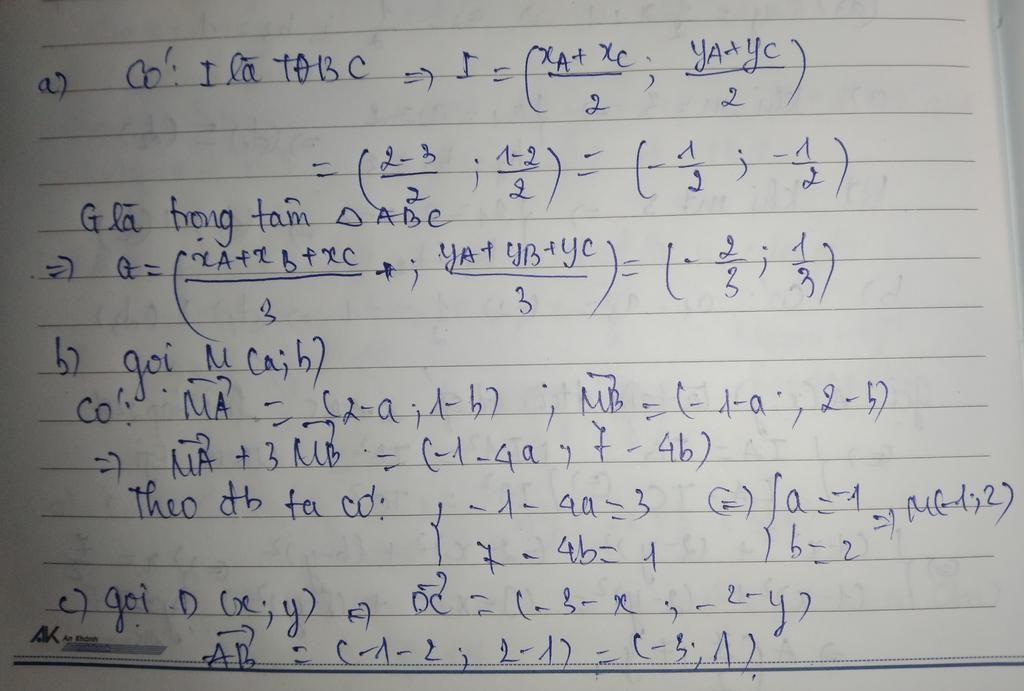 a) Có: I là TĐBC ⇒ I = (xA + xC / 2 ; yA + yC / 2)
= (2-3 / 2 ; 1-2 / 2) = (-1/2 ; -1/2)
G là trọng tâm △ ABC
⇒ G = (xA + xB + xC / 3 ; yA + yB + yC / 3) = (-2/3 ; 1/3)
b) gọi M (a;b)
Có: MA→ = (2-a ; 1-b) ; MB→ = (-1-a ; 2-b)
⇒ MA→ + 3 MB→ = (-1-4a ; 7-4b)
Theo đb ta có: { -1-4a=3 (=) { a=-1 ⇒ M(-1;2)
7-4b=1 b=2
c) gọi D (x;y) ⇒ DC→ = (-3-x ; -2-y)
AK An Khánh
AB→ = (-1-2 ; 2-1) = (-3;1)